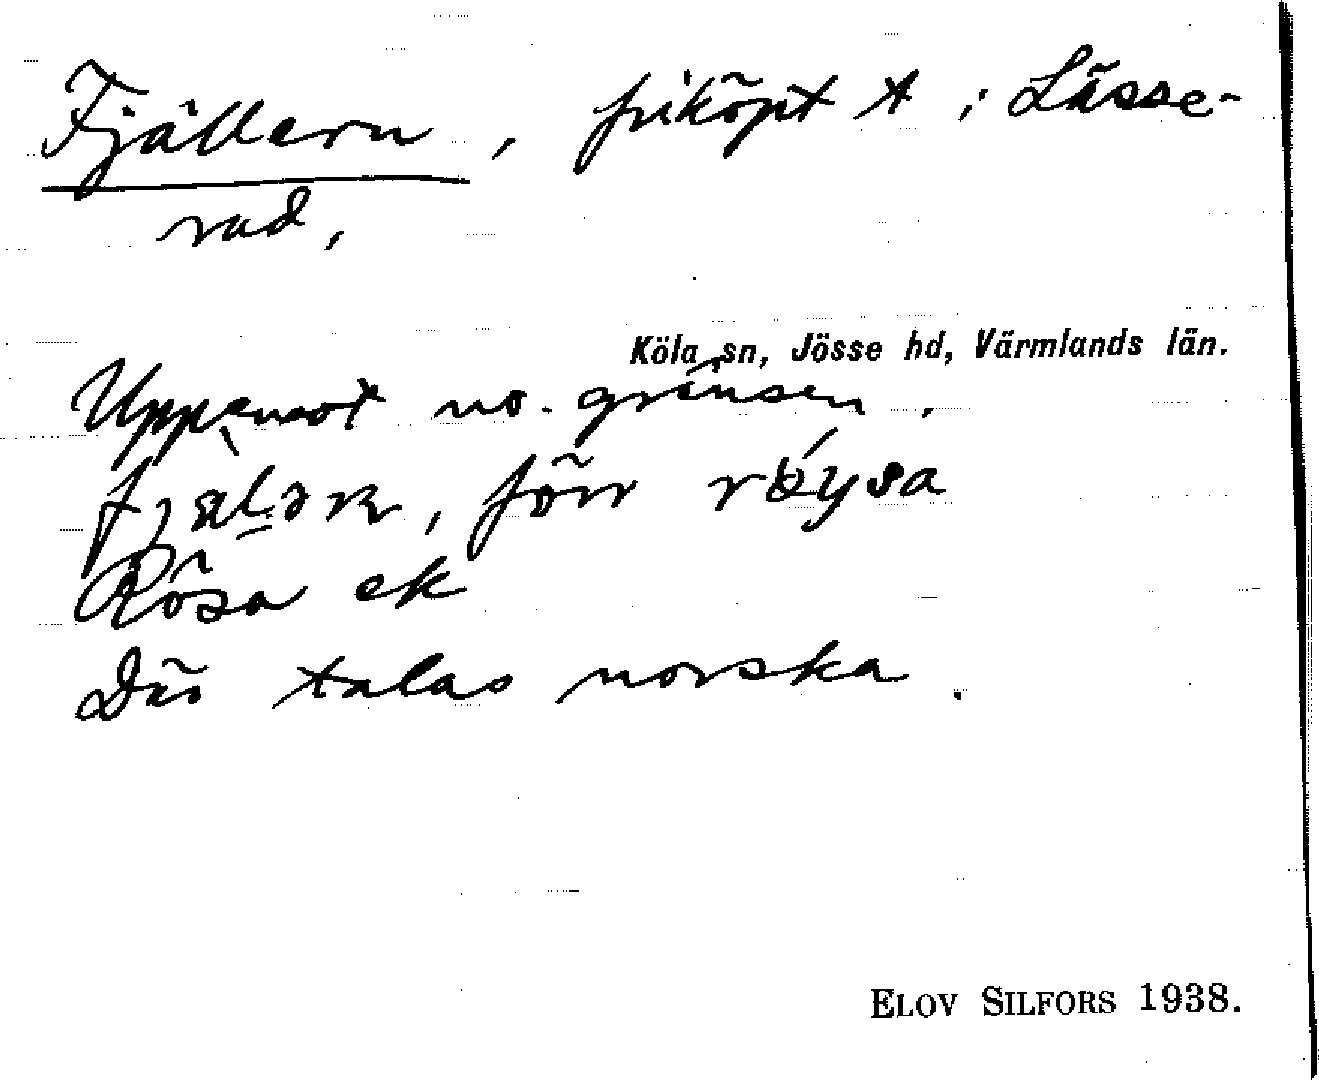 Fjällern, friköpt t i Lässe-
rud,
Köla sn, Jösse hd, Värmlands län.
Uppemot no. gränsen.
fjæləɳ, förr röysa
Rösa ek
Där talas norska.
ELOV SILFORS 1938.